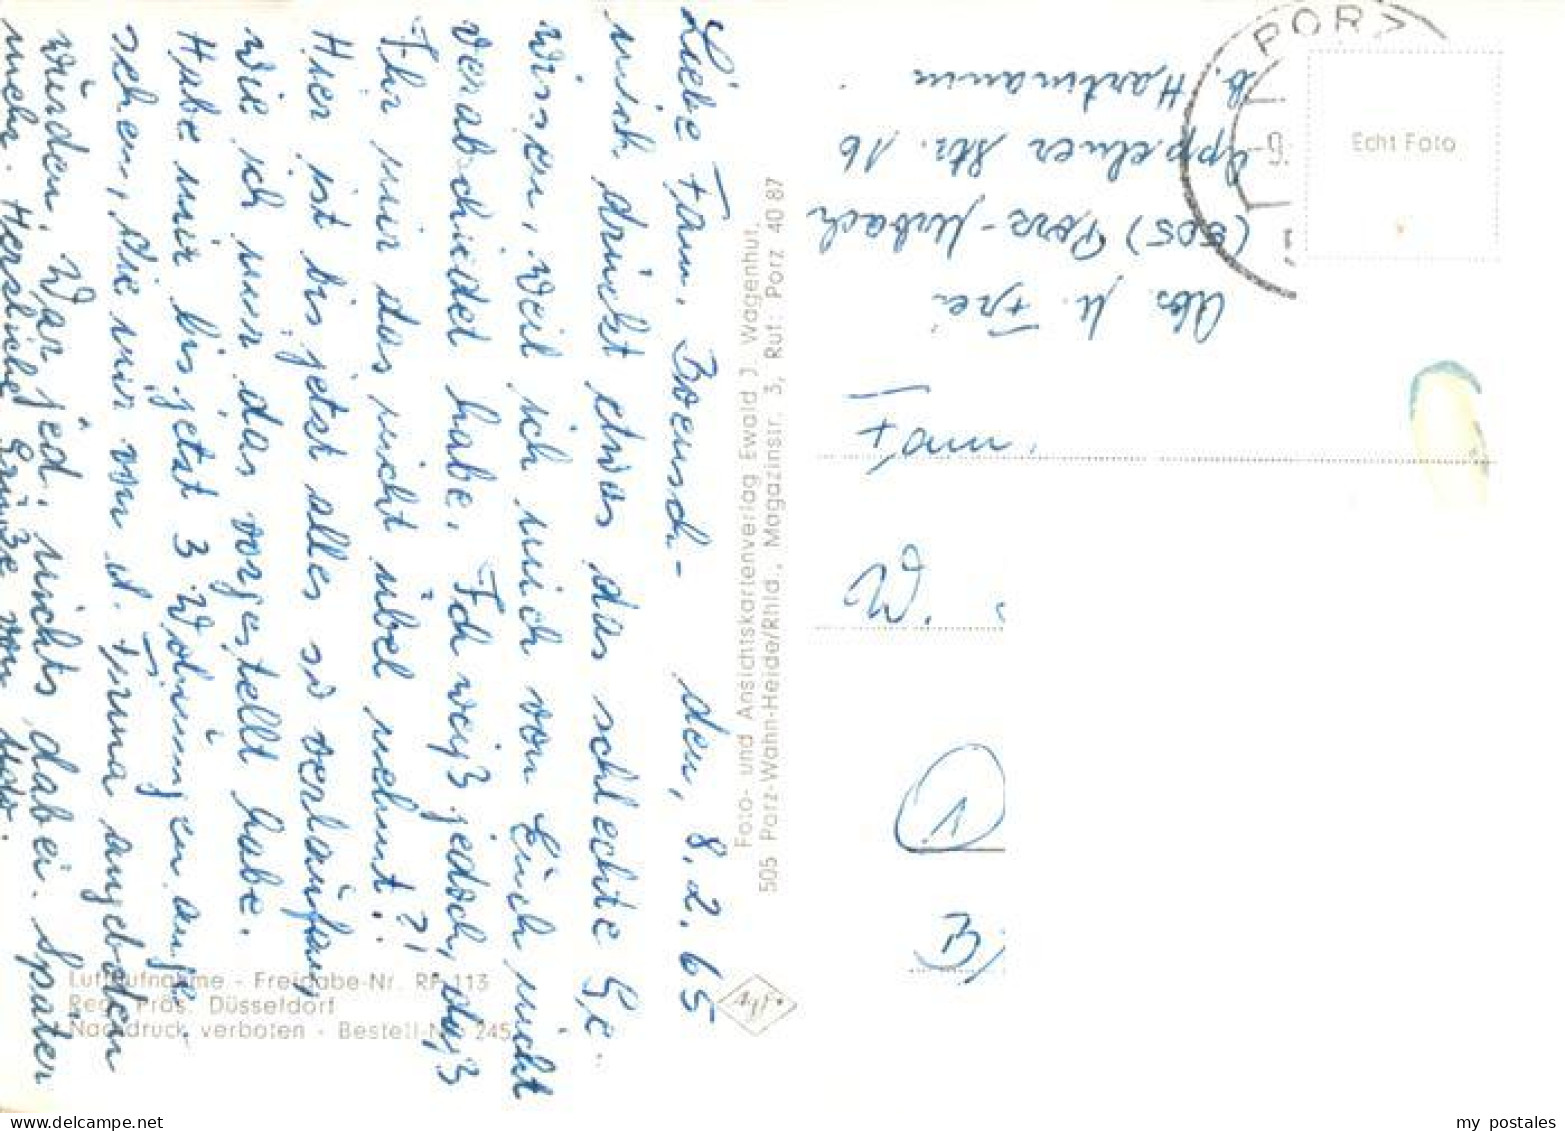 Liebe Fam. Boensch- den, 8.2.65
mich drückt etwas das schlechte Ge-
wissen, weil ich mich von Euch nicht
verabschiedet habe. Ich weiß jedoch, daß
Ihr mir das nicht übel nehmt?!
Hier ist bis jetzt alles so verlaufen,
wie ich mir das vorgestellt habe.
Habe mir bis jetzt 3 Wohnungen ange-
sehen, die mir von d. Firma angeboten
wurden. War jed. nichts dabei. Später
mehr. Herzliche Grüße von
Foto- und Ansichtskartenverlag Ewald J. Wagenhut,
505 Porz-Wahn-Heide/Rhld., Magazinstr. 3, Ruf: Porz 40 87
Luftaufnahme - Freigabe-Nr. RP 113
Reg. Präs. Düsseldorf
Nachdruck verboten - Bestell-Nr. 245
Abs. M. Frei
(505) Porz-Urbach
Oppelner Str. 16
b. Hartmann
PORZ
Echt Foto
Fam
W.
1
B
my postales